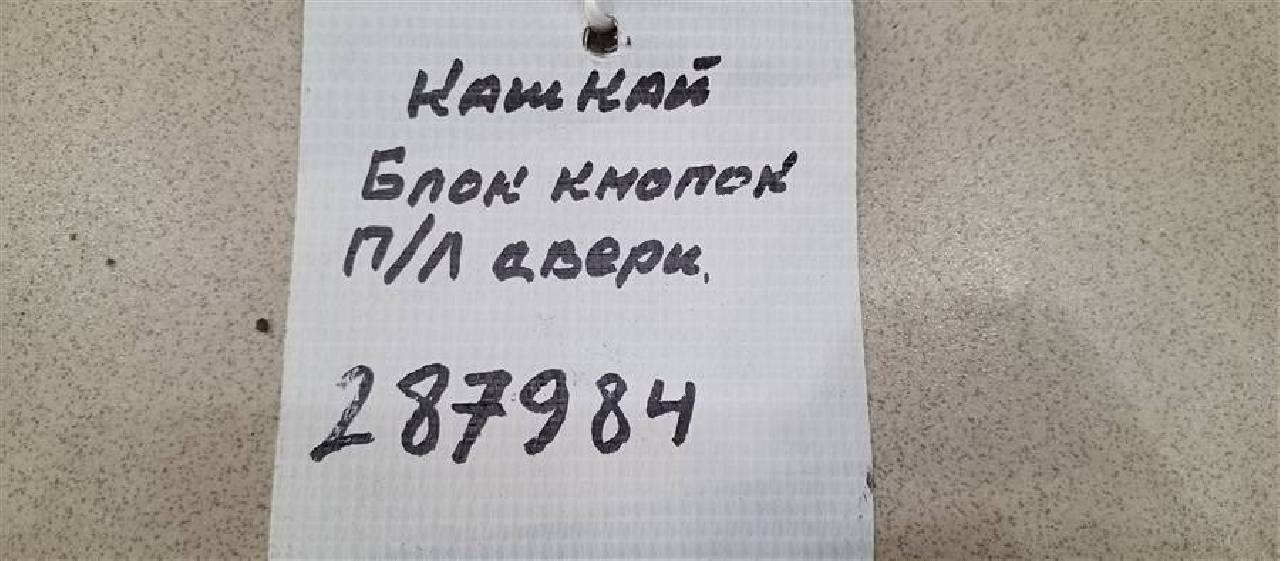 Кашкай
Блок кнопок
П/Л двери.
287984